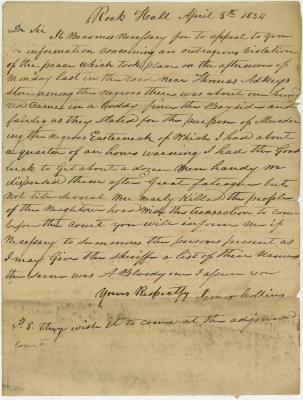 Rock Hall April 5th 1834
Dr Sir It Becomes Necessary for to appeal to You
for information concerning an outragious Violation
of the peace which took place on the afternoon of
Monday last in the road near Thomas Adkeys
Store among the negros there was about one hun
dred came in a boddy from the Bay side and
fairley as they stated for the purpose of Murder
ing the negros Easterneck of Which I had about
a quarter of an hours warning I had the Good
luck to Get about a dozen Men handy we
dispersed them after Great fateague but
Not till Several Wer nearly killed the people
of the Neighbor hood Wish the transaction to come
before the Court you will inform me if
Necessary to summons the persons present as
I may Give the Sheriff a list of their Names
the Scene was A Bloody one I assure you
Yours Respectfy Collins
P.S. they wish it to come at the adjourned
court